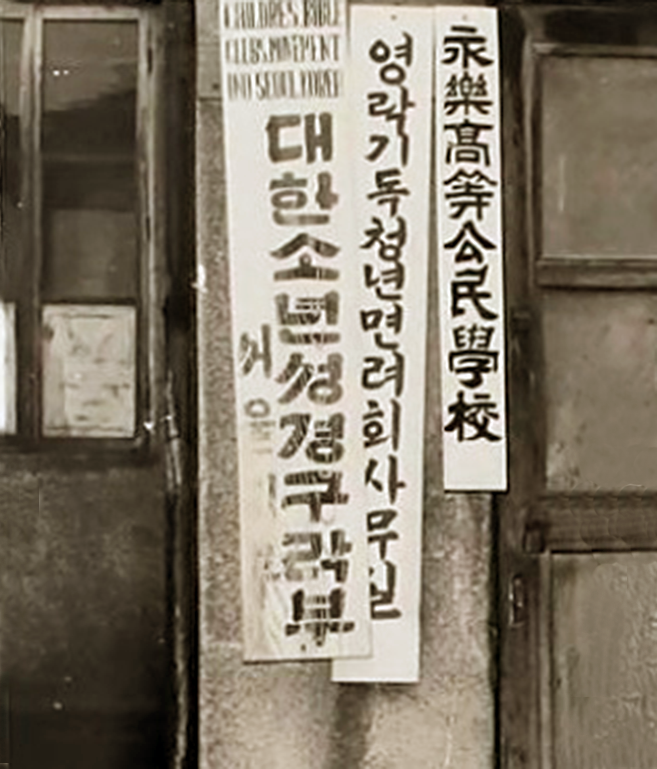 CHILDRES BIBLE
CLUBS.MOVEMENT
SEOUL KOREA
대한소년성경구락부
서울
영락기독청년면려회사무실
永樂髙等公民學校